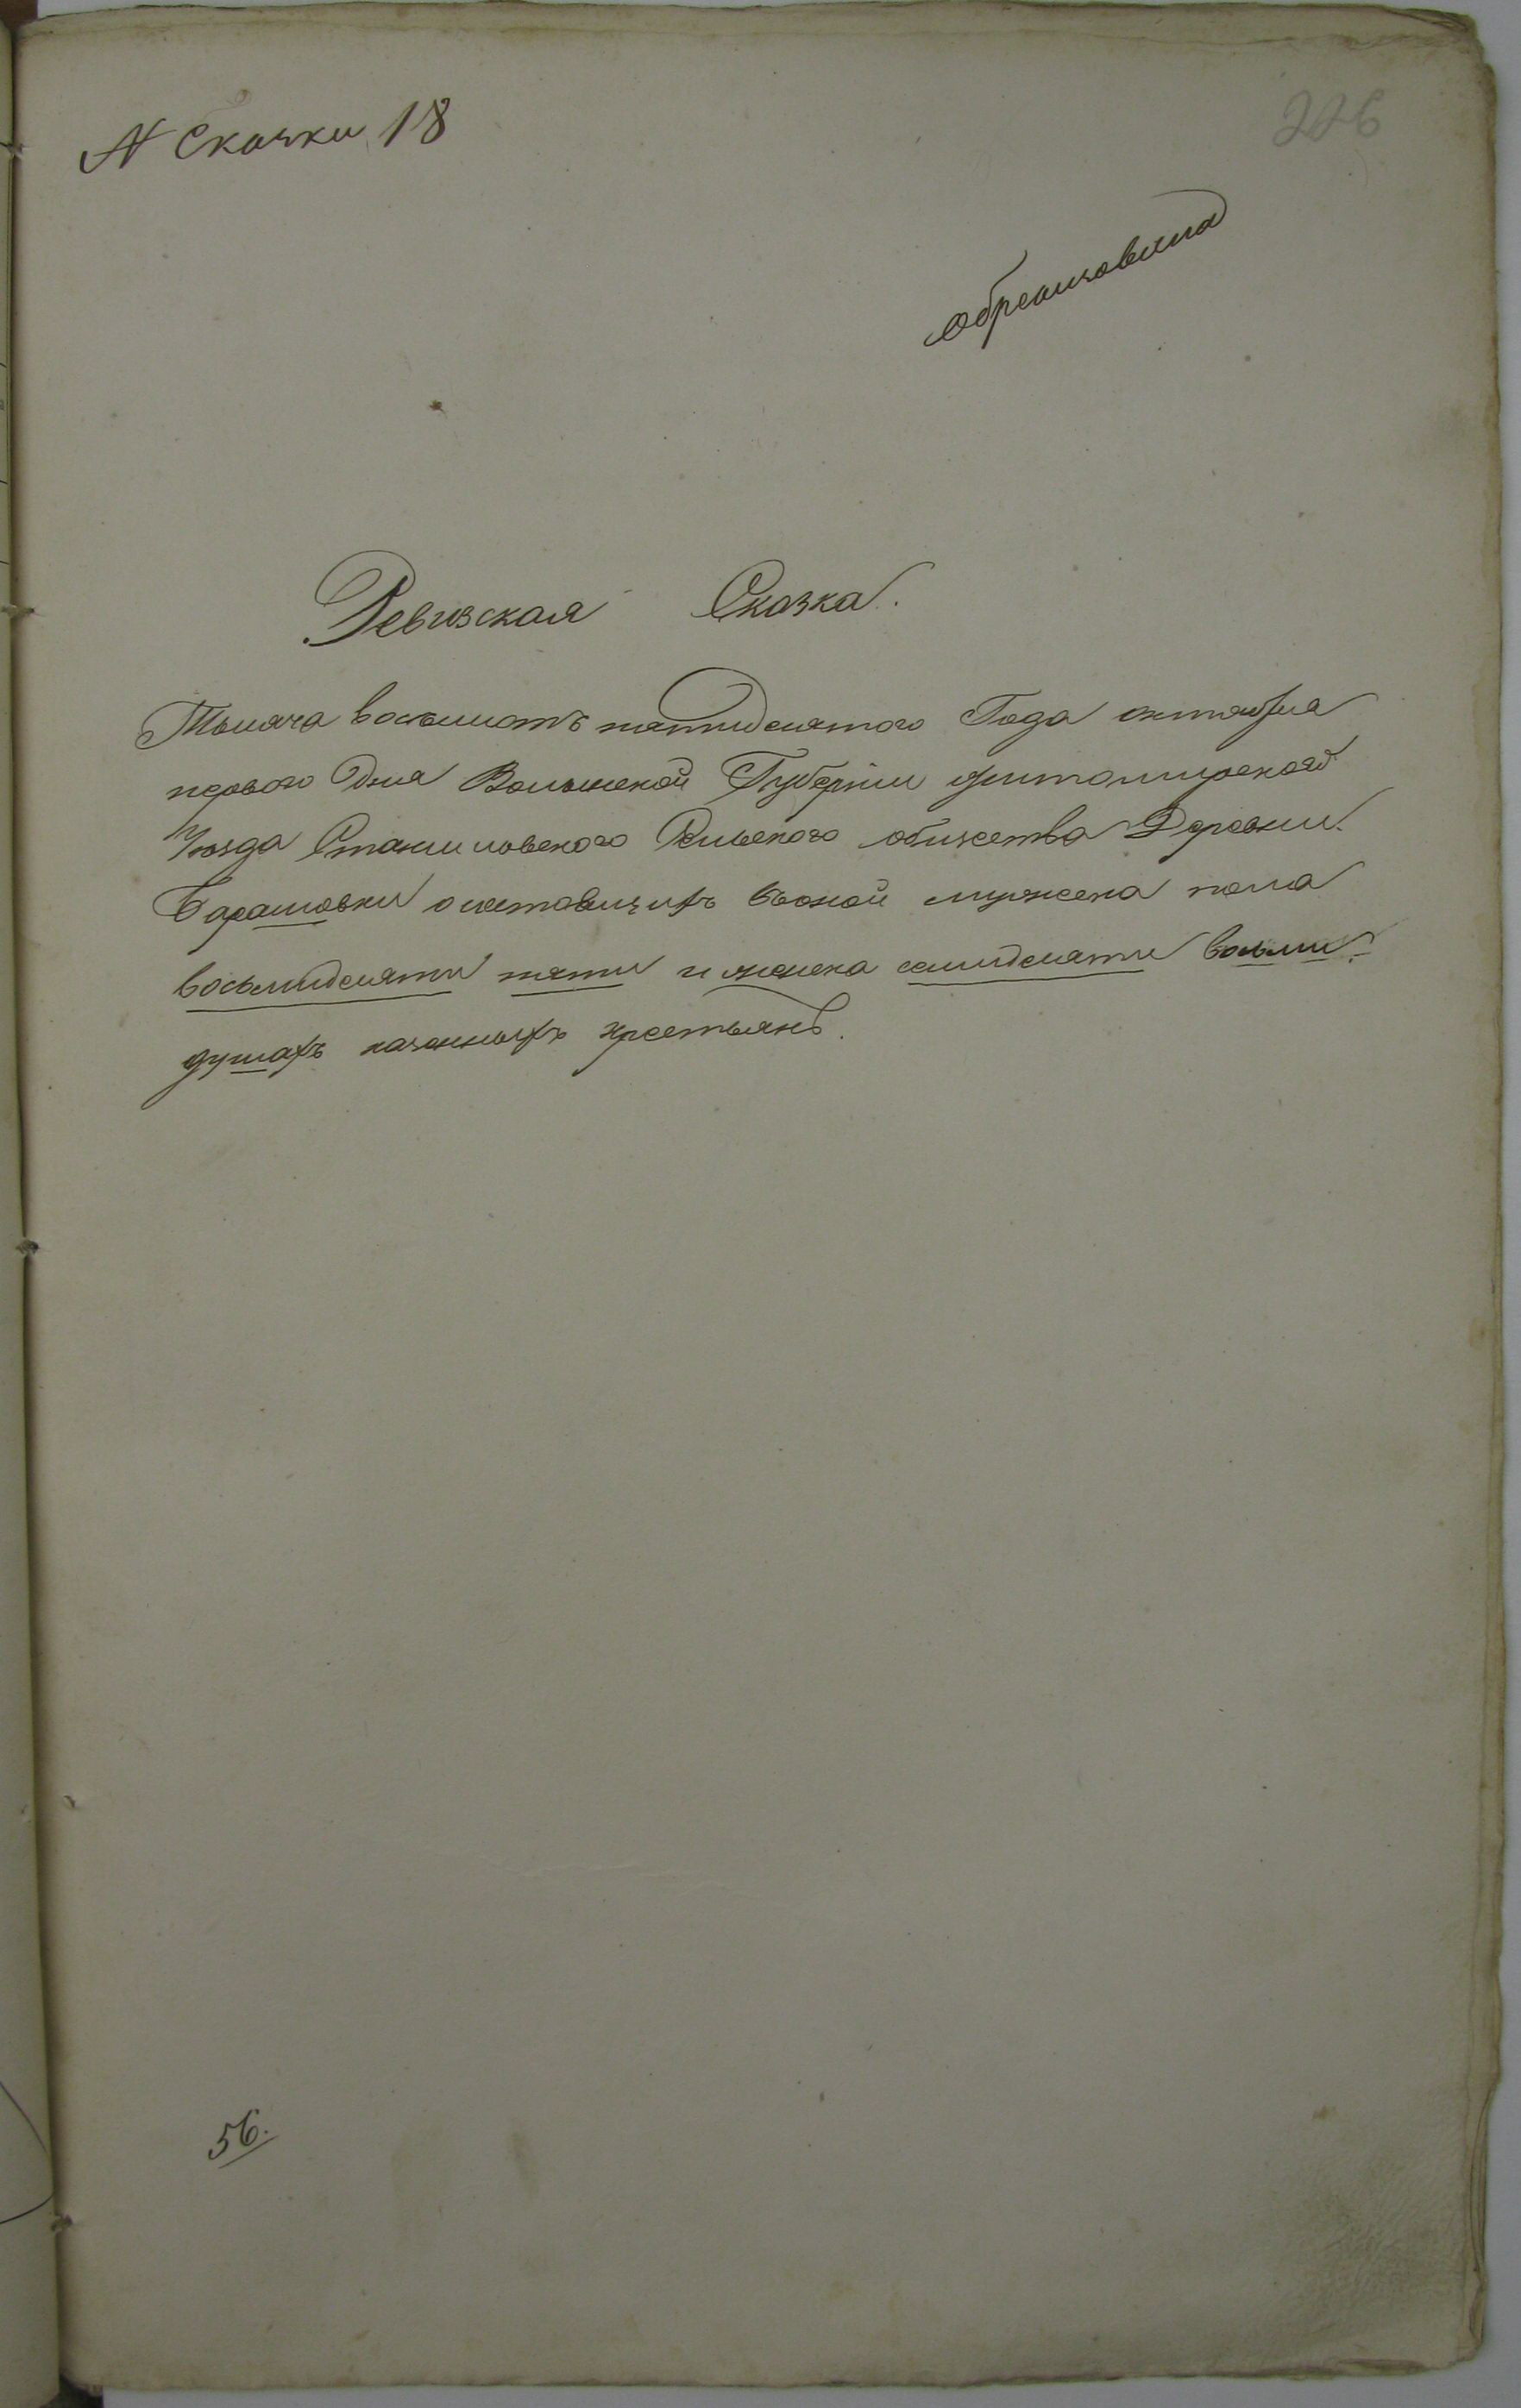 N Сказки 18
226
Ревизская Сказка.
Тысяча восемьсотъ пятидесятого Года октября
первого Дня Волынской Губерніи Житомирской
Уѣзда сельского общества Деревни
Барашовки о состоящихъ въоной мужеска пола
восьмидесяти пяти и женска семидесяти восьми
душахъ казенныхъ крестьянъ.
56.